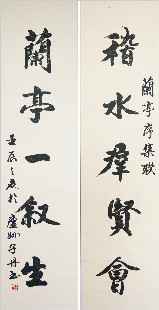 稽水群賢會
蘭亭序集联
蘭亭一叙生
壬辰之夏於